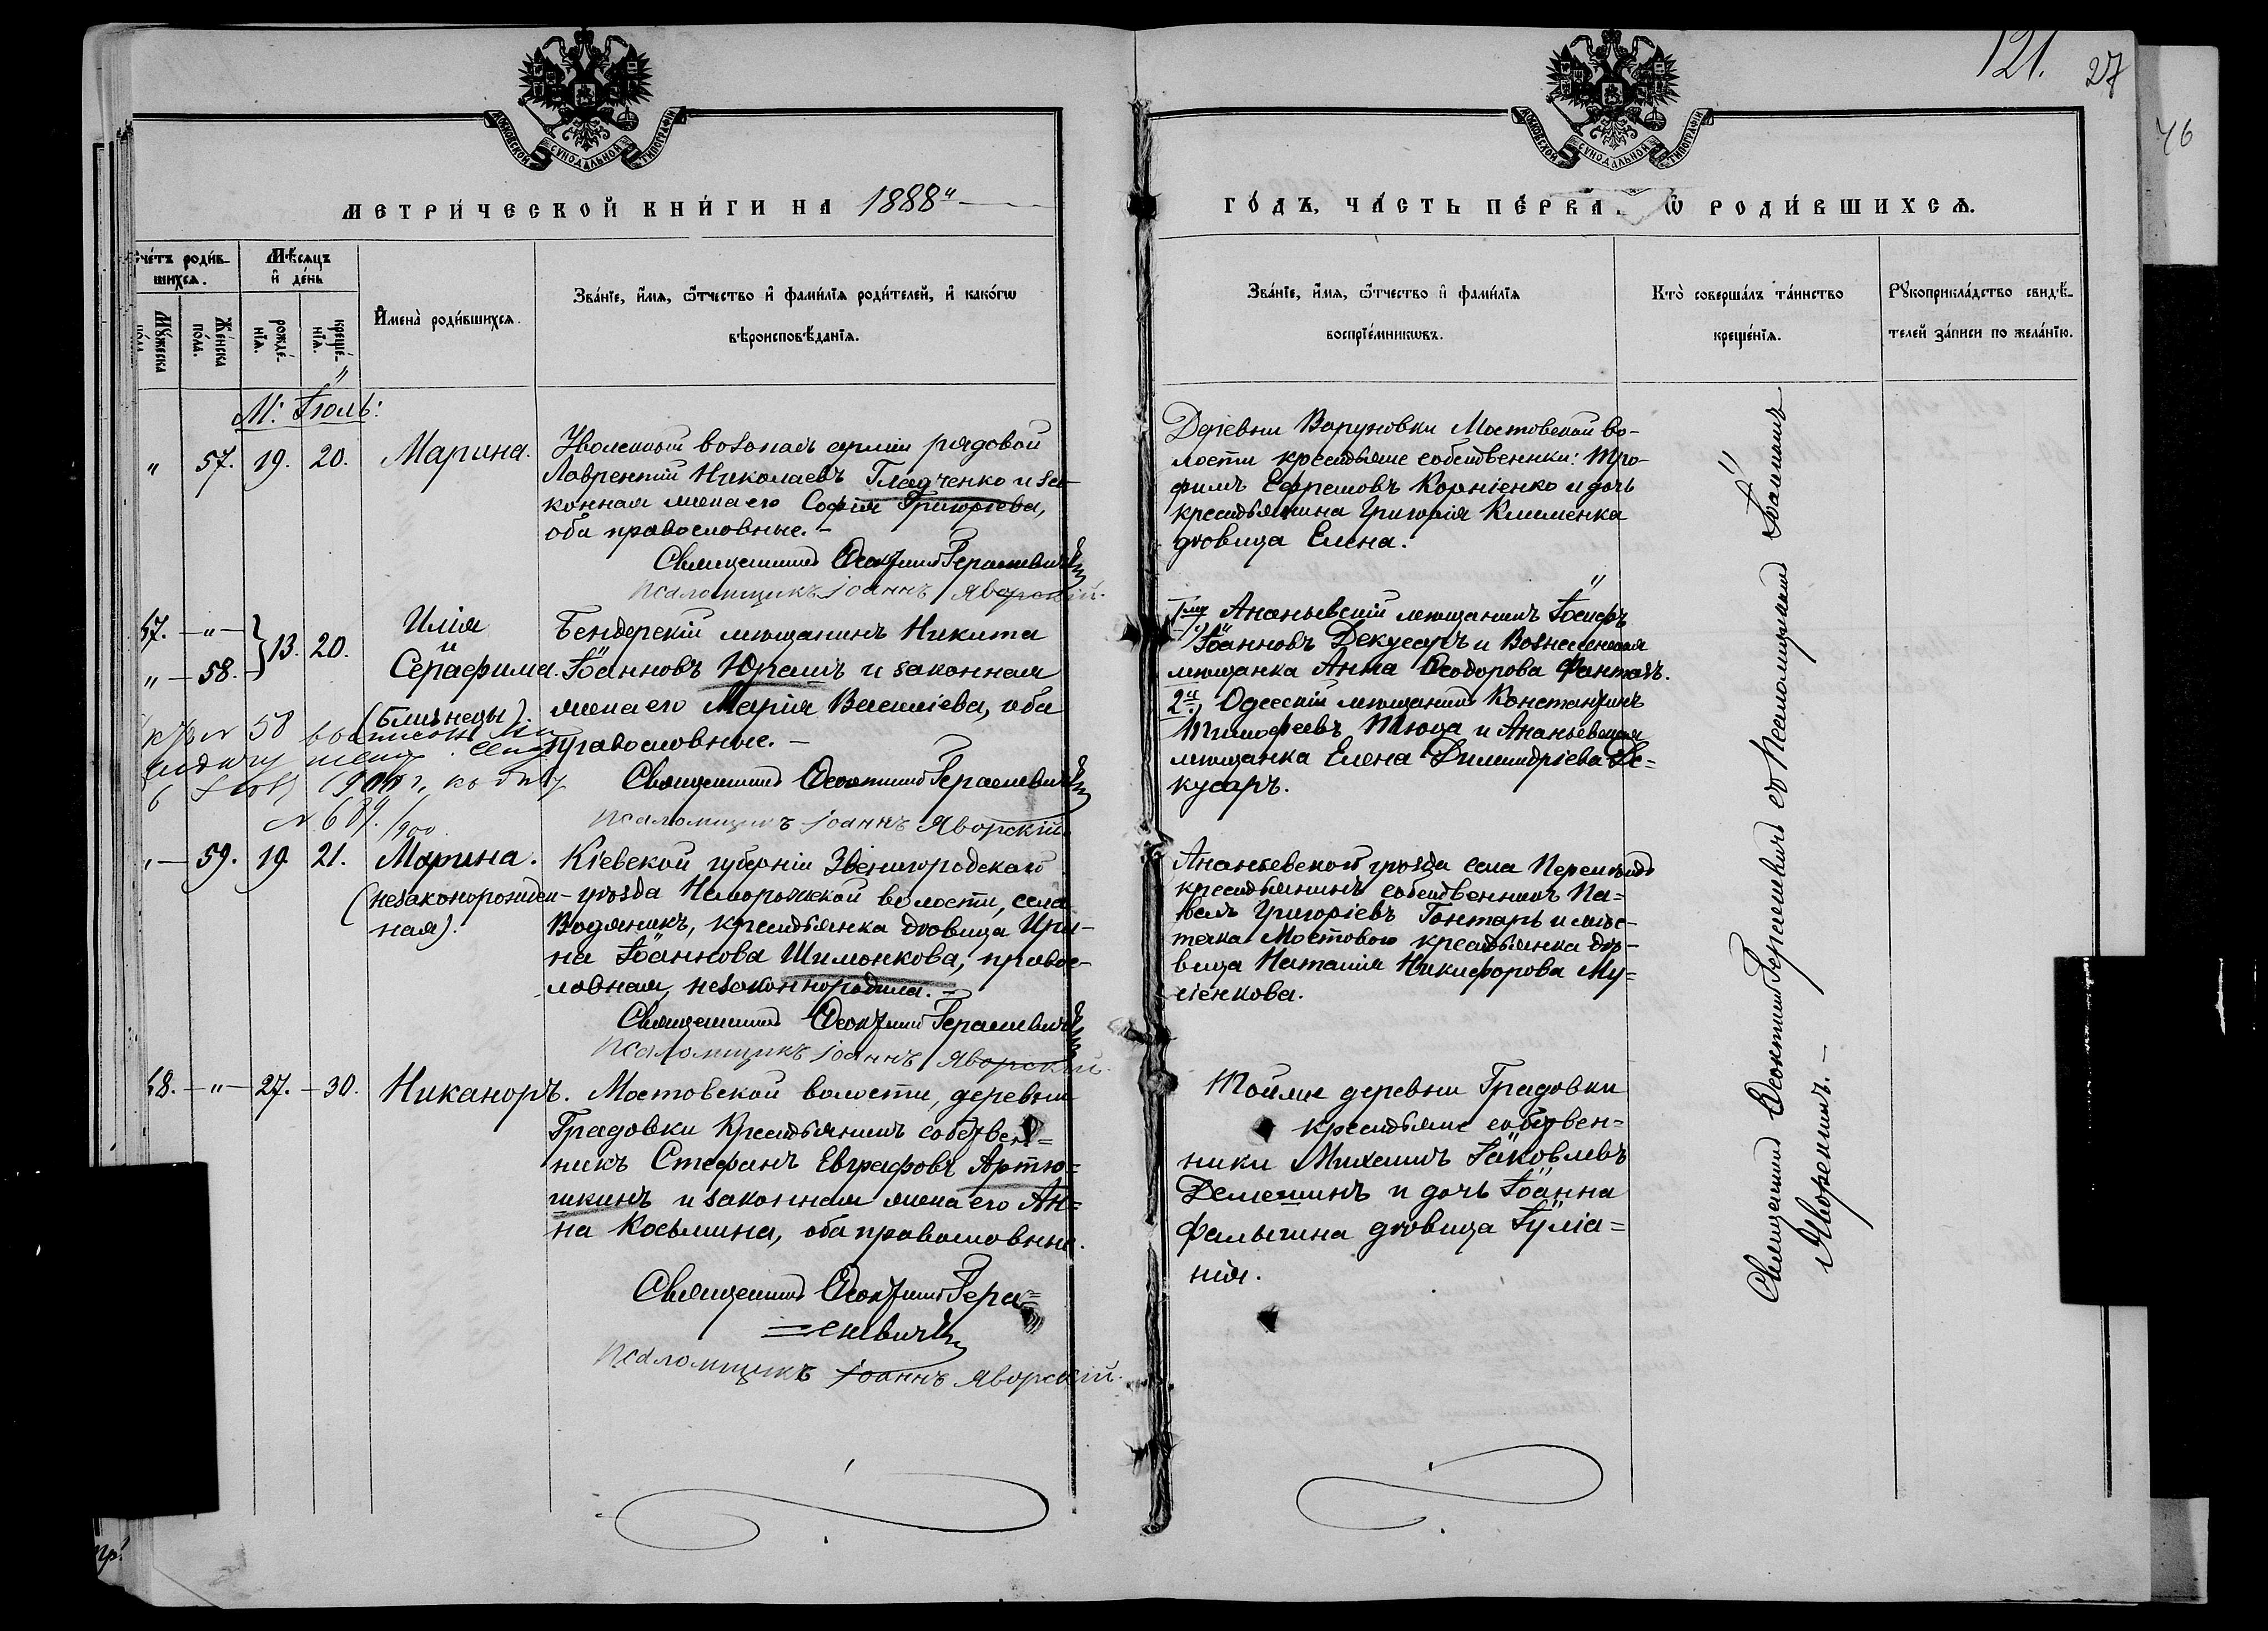 121. 27
76
МОСКОВСКОЙ СУНОДАЛЬНОЙ ТИПОГРАФІИ
МОСКОВСКОЙ СУНОДАЛЬНОЙ ТИПОГРАФІИ
МЕТРИ́ЧЕСКОЙ КНИ́ГИ НА 1888й
ГО́ДЪ, ЧА́СТЬ ПЕ́РВА Ѡ РОДИ́ВШИХСѦ.
Сче́тъ роди́в-
шихсѧ.
Мѣ́сѧцъ
и҆ де́нь
Му́жеска
по́ла.
Же́нска
по́ла.
рожде́-
нїѧ.
креще́-
нїѧ.
И҆мена̀ роди́вшихсѧ.
Зва́нїе, и҆́мѧ, ѻ҆́тчество и҆ фами́лїѧ роди́телей, и҆ како́гѡ
вѣроисповѣ́данїѧ.
Зва́нїе, и҆́мѧ, ѻ҆́тчество и҆ фами́лїѧ
воспрїе́мникѡвъ.
Кто̀ соверша́лъ та́инство
креще́нїѧ.
Рꙋкоприкла́дство свидѣ́-
телей за́писи по жела́нїю.
М: Іюль:
" 57. 19. 20. Марина. Уволенный въ запасъ арміи рядовой
Лаврентій Николаевъ Гладченко и за-
конная жена его Софія Григоріева,
оба православные. -
Священникъ Ѳеоктистъ Герасевичъ
Псаломщикъ Іоаннъ Яворскій.
Деревни Варуновки Мостовской во-
лости крестьяне собственники: Тро-
фимъ Ефремовъ Корніенко и дочь
крестьянина Григорія Клименка
дѣвица Елена.
57. - " - } 13. 20. Илія
и
" - 58. - Серафима.
(близнецы).
Бендерскій мѣщанинъ Никита
Іоанновъ Юрашъ и законная
жена его Марія Василіева, оба
православные. -
Священникъ Ѳеоктистъ Герасевичъ
Псаломщикъ Іоаннъ Яворскій.
№ 58
1900 г.
1., Ананьевскій мѣщанинъ Іосифъ
Іоанновъ Декусаръ и Вознесенская
мѣщанка Анна Ѳеодорова Фанталъ.
2й., Одесскій мѣщанинъ Константинъ
Тимофеевъ Тюца и Ананьевская
мѣщанка Елена Димитріева Де=
кусаръ.
" - 59. 19. 21. Марина.
(незаконорожден-
ная).
Кіевской губерніи Звенигородскаго
уѣзда волости, села
Водяникъ, крестьянка дѣвица Ири-
на Іоаннова Шимонкова, правос-
лавная, незаконнородила. -
Священникъ Ѳеоктистъ Герасевичъ
Псаломщикъ Іоаннъ Яворскій.
Ананьевскаго уѣзда села
крестьянинъ собственникъ Па=
велъ Григоріевъ Гонтарь и мѣс-
течка Мостового крестьянка дѣ-
вица Наталія Никифорова Му=
сіенкова.
58. - " - 27. - 30. Никаноръ. Мостовской волости, деревни
Градовки Крестьянинъ собствен=
никъ Стефанъ Евграфовъ Артю=
шкинъ и законная жена его Ан=
на Косьмина, оба православные.
Священникъ Ѳеоктистъ Гера=
=севичъ
Псаломщикъ Іоаннъ Яворскій.
Тойже деревни Градовки
крестьяне собствен=
ники Михаилъ Іаковлевъ
Демешинъ и дочь Іоанна
Фалыгина дѣвица Іуліа=
нія.
Священникъ Ѳеоктистъ Герасевичъ съ Псаломщикомъ Іоанномъ
Яворскимъ. -